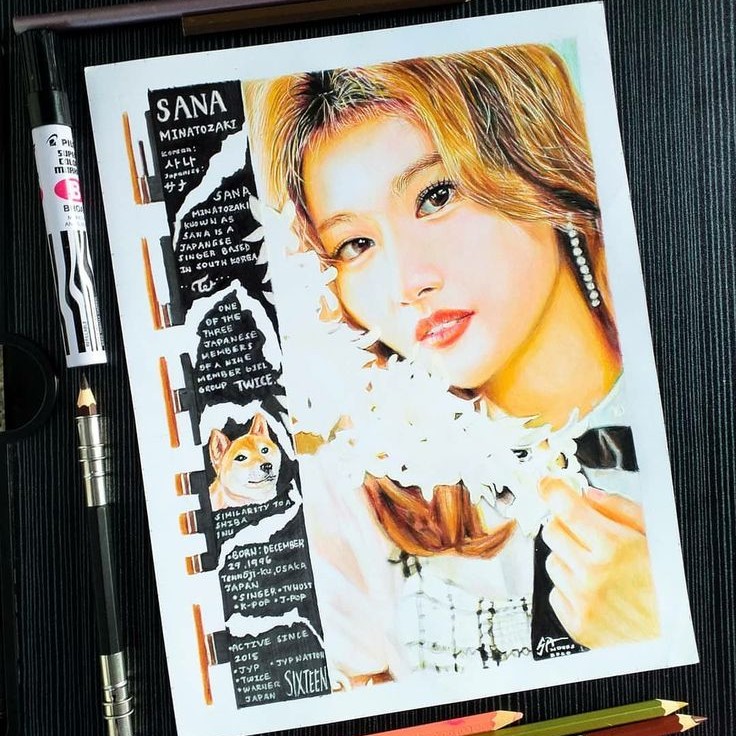 SANA
MINATOZAKI
KOREAN:
사나
JAPANESE:
サナ
SANA
MINATOZAKI
KNOWN AS
SANA IS A
JAPANESE
SINGER BASED
IN SOUTH KOREA
ONE
OF THE
THREE
JAPANESE
MEMBERS
OF A NINE
MEMBER GIRL
GROUP TWICE.
SIMILARITY TO A
SHIBA
INU
•BORN: DECEMBER
29, 1996
TENNŌJI-KU, OSAKA
JAPAN
•SINGER •TV HOST
•K-POP •J-POP
•ACTIVE SINCE
2015
•JYP •JYP NATION
•TWICE
•WARNER
JAPAN
SIXTEEN
SUPER
COLOR
MARKER
B